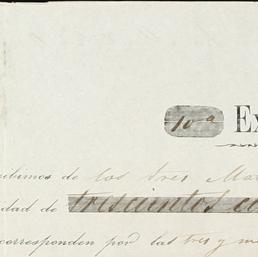 10ª Ex
cibimos de los tres Ma
dad de trescientos c
corresponden por las tres y m